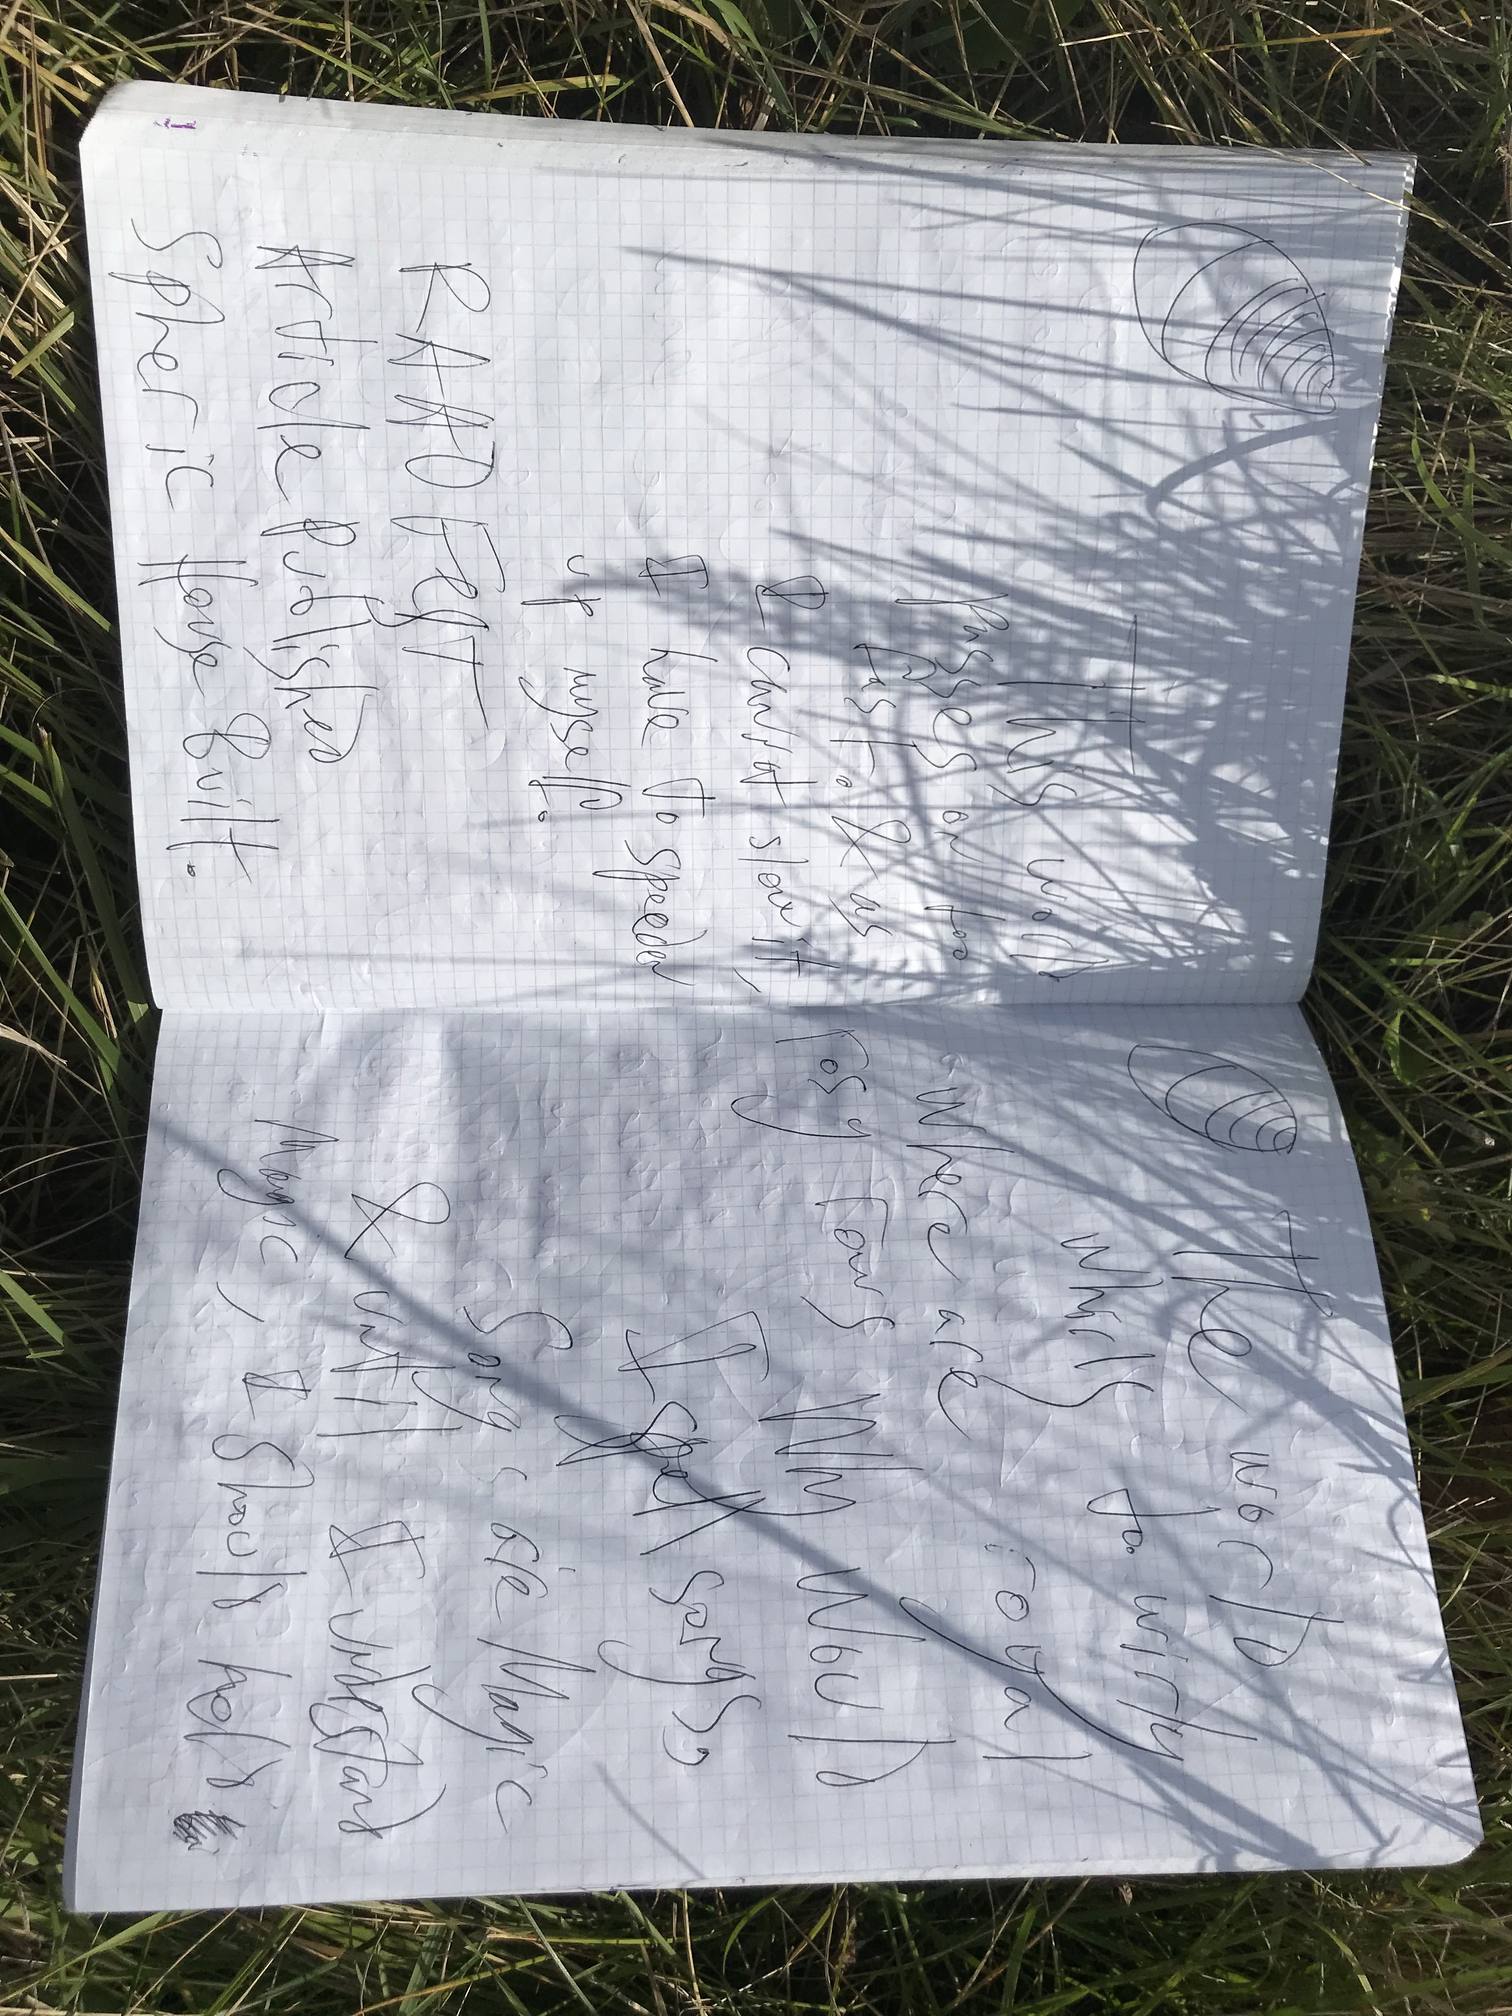 This world
passes on too
fast. & as
I cannot slow it,
I have to speeden
up myself.
RAAD Fest
Article published
Spheric House Built.
The world
whirls to. with
where are royal
rosy Tows
Why would
I spell songs,
Songs are Magic
& until I understand
Magic, I should hold